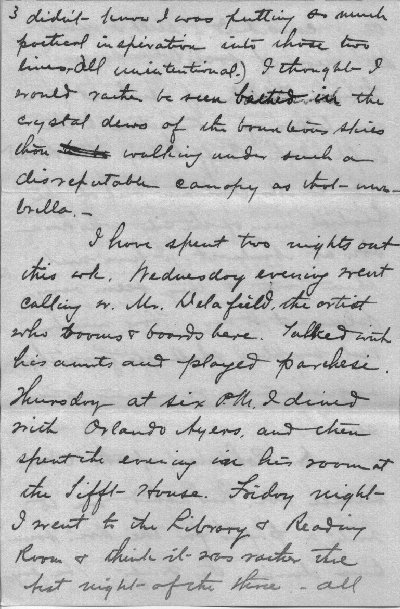 3 didn't know I was putting so much
poetical inspiration into those two
lines, all unintentional.) I thought I
would rather be seen bathed in the
crystal dews of the bounteous skies
than walking under such a
disreputable canopy as that um-
brella. -
I have spent two nights out
this wk. Wednesday evening went
calling w. Mr. Delafield, the artist
who rooms & boards here. Talked with
his aunts and played parchesi.
Thursday at six P.M. I dined
with Orlando Ayers, and then
spent the evening in his room at
the Tifft House. Friday night
I went to the Library & Reading
Room & think it was rather the
best night of the three - all